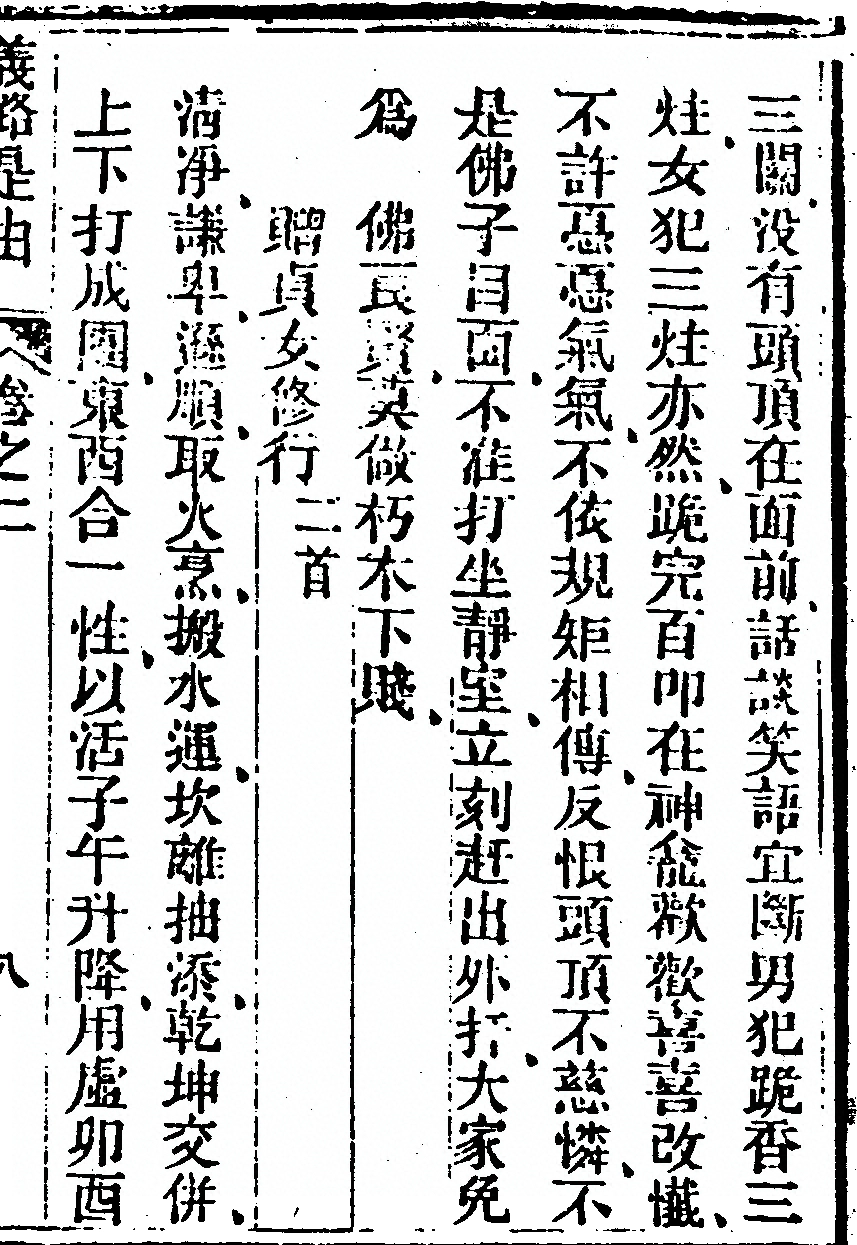 三關没有頭頂在面前話談笑語宜斷男犯跪香三
炷女犯三炷亦然跪完百叩在神龕歡歡喜喜改懺
不許惡惡氣氣不依規矩相傳反恨頭頂不慈憐不
是佛子目面不准打坐靜室立刻赶出外行大家免
爲　佛艮賢莫做朽木下賤
贈貞女修行　二首
清凈謙卑遜順取火烹搬水運坎離抽添乾坤交併
上下打成團東西合一性以活子午升降用虛卯酉
義路是由　卷之二　八